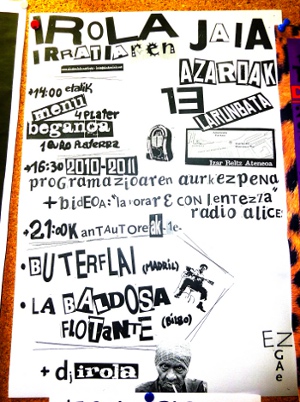 IROLA JAIA
IRRATIAREN
AZAROAK
13
LARUNBATA
+14:00 etatik
menu
4 plater
begano,
1 euro platerra
Izar Beltz Ateneoa
+16:30 2010-2011
programazioaren aurkezpena
+ bideoa: "lavorare con lentezza"
radio alice
+21:00k anTAuToreak-
• BUTERFLAI (MADRIL)
• LA BALDOSA
FLOTANTE (Bilbo)
EZ
GAe
+ dj irola